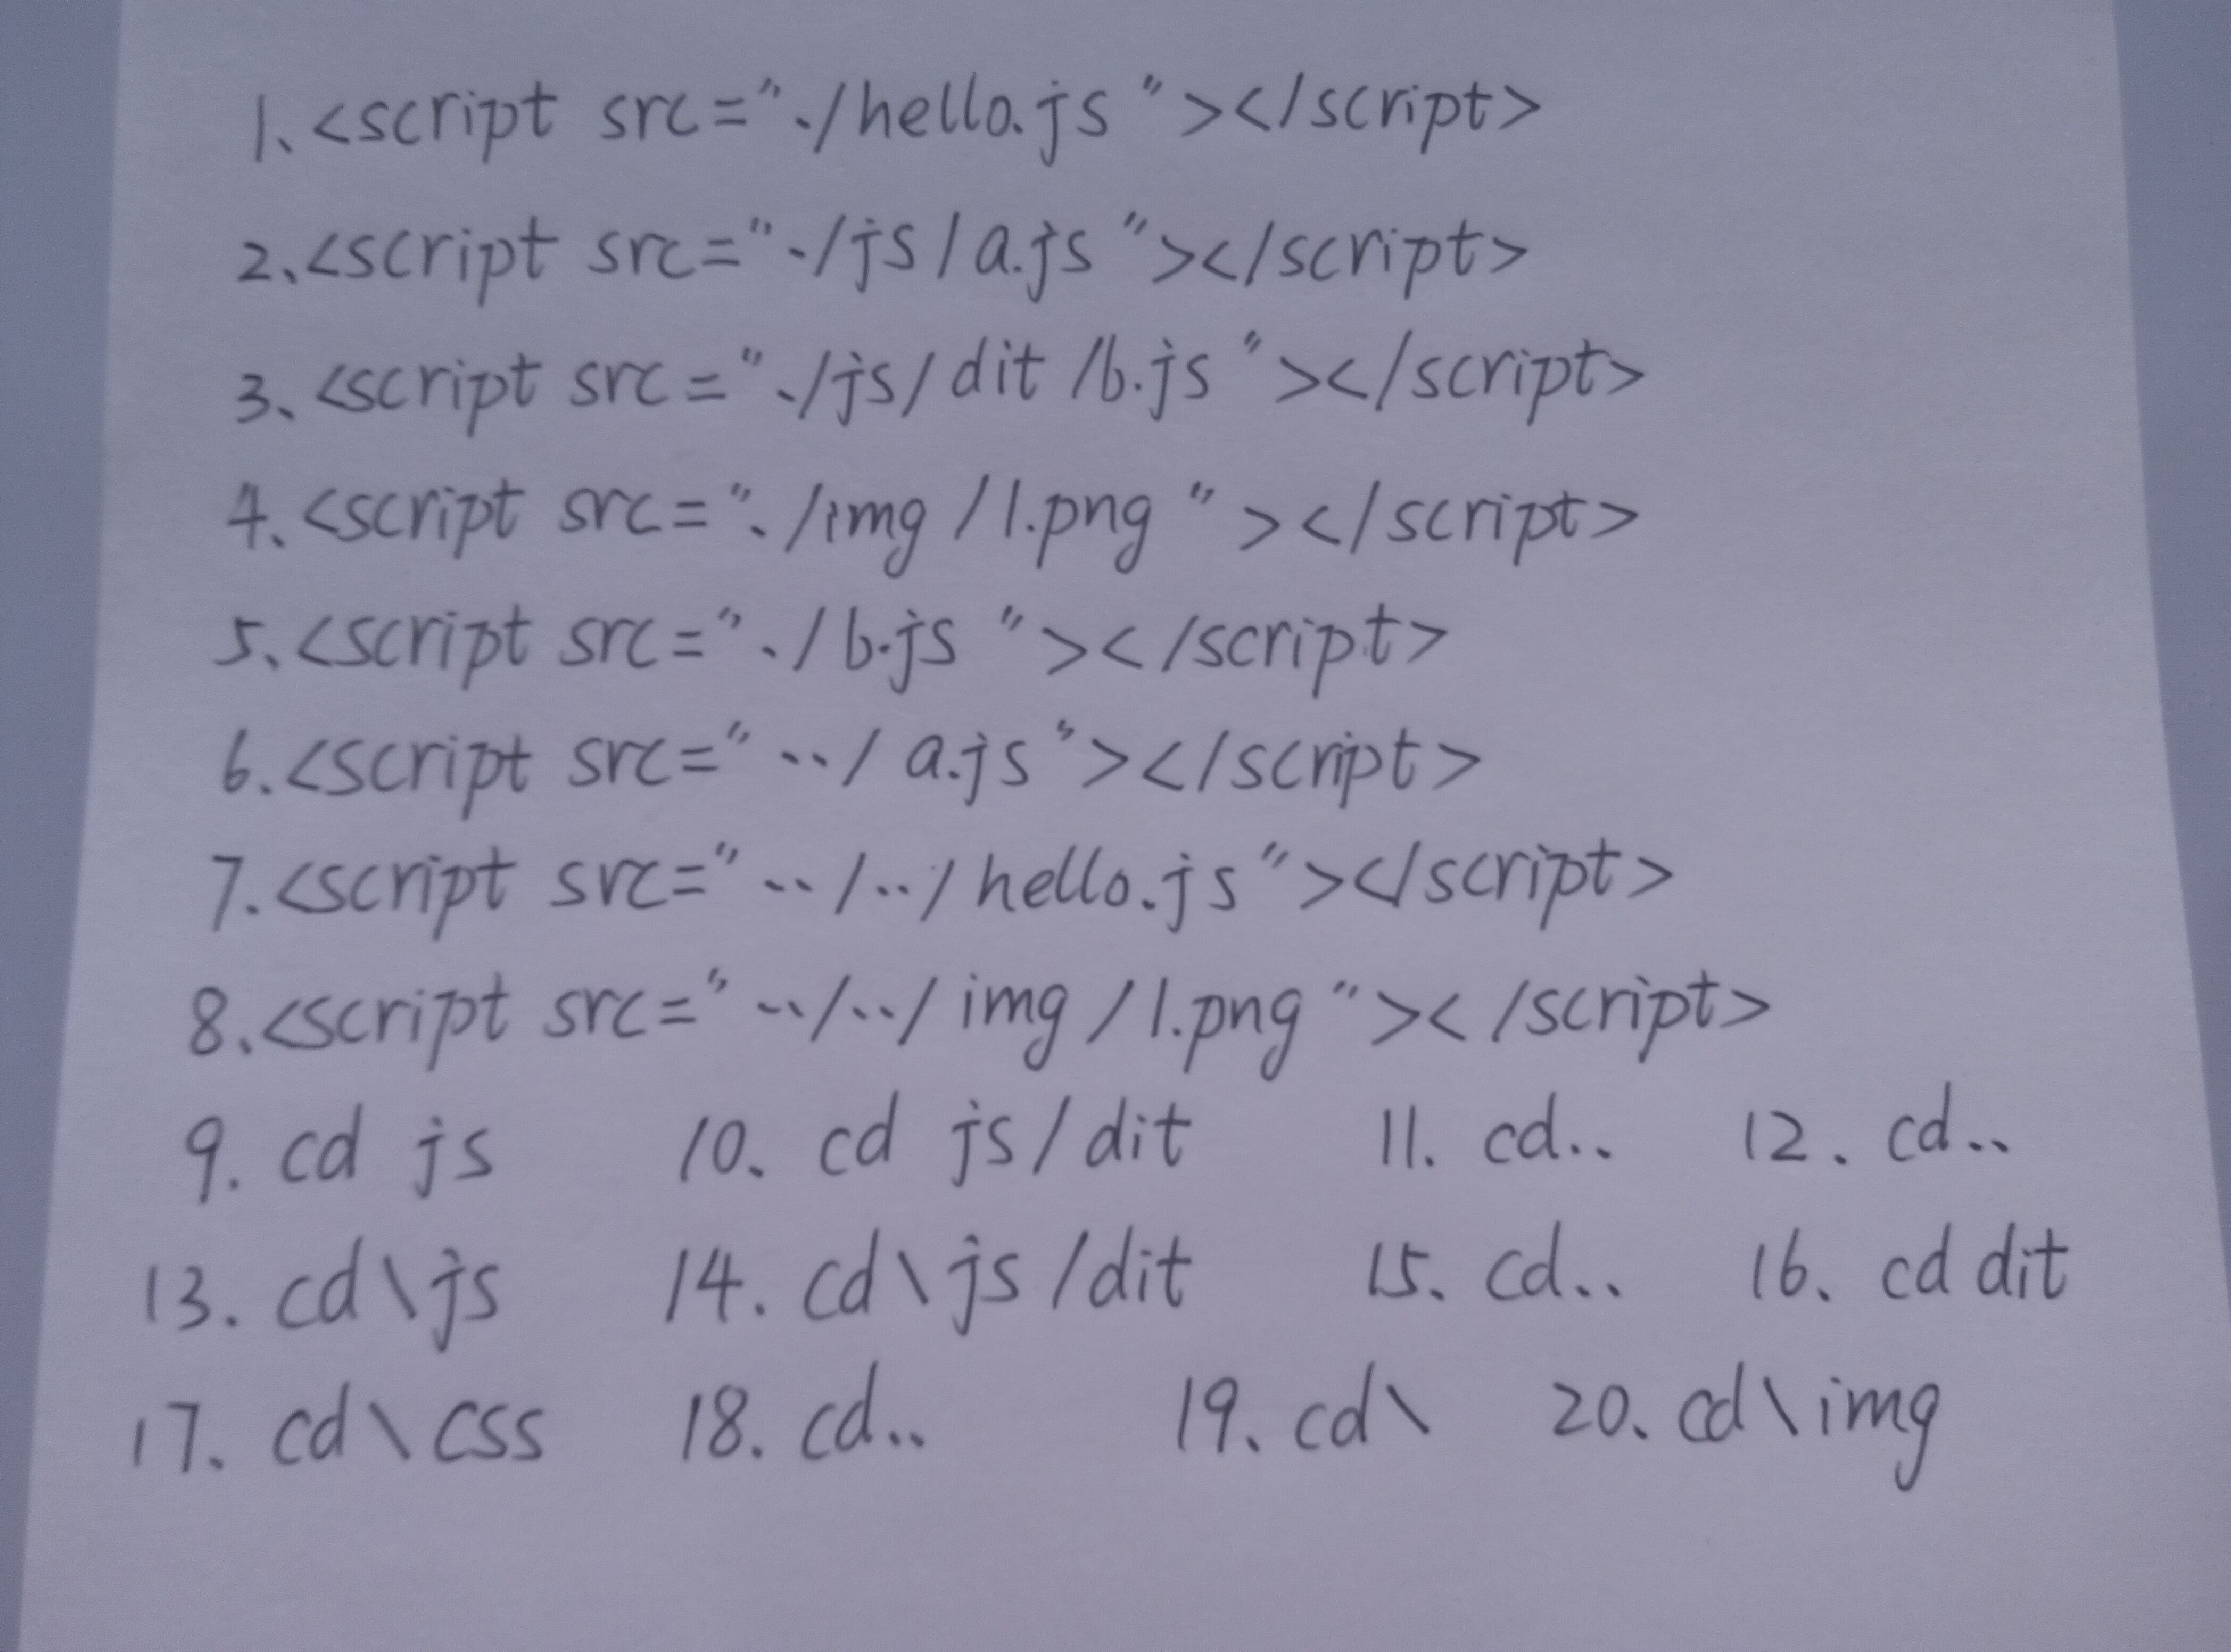 1、<script src="./hello.js"></script>
2、<script src="./js/a.js"></script>
3、<script src="./js/dit/b.js"></script>
4、<script src="./img/1.png"></script>
5、<script src="./b.js"></script>
6.<script src="../a.js"></script>
7.<script src="../../hello.js"></script>
8、<script src="../../img/1.png"></script>
9. cd js 10、cd js/dit 11. cd.. 12. cd..
13. cd\js 14. cd\js/dit 15、cd.. 16、cd dit
17、cd\css 18. cd.. 19、cd\ 20、cd\img